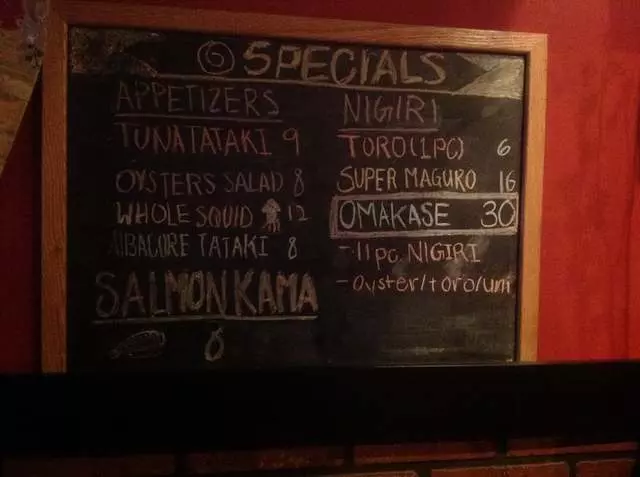 6 SPECIALS
APPETIZERS
TUNA TATAKI 9
OYSTERS SALAD 8
WHOLE SQUID 12
AlBACORE TATAKI 8
SALMON KAMA
8
NIGIRI
TORO(1PC) 6
SUPER MAGURO 16
OMAKASE 30
-11pc. NIGIRI
-oyster/toro/uni